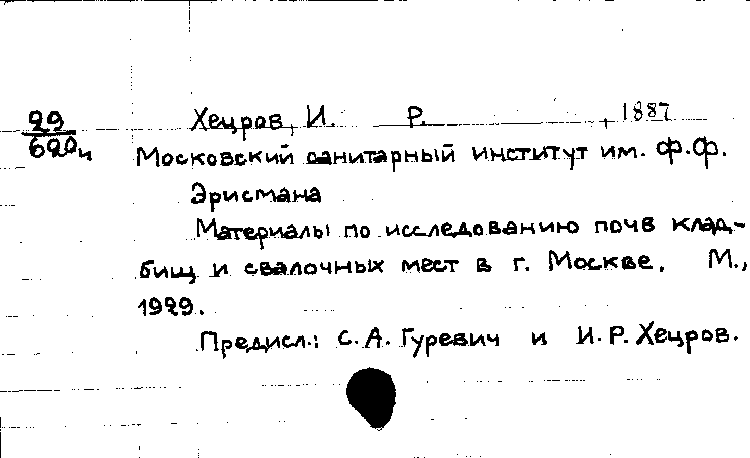 29
620и
Хецров, И. Р. , 1887
Московский санитарный институт им. Ф.Ф.
Эрисмана
Материалы по исследованию почв клад-
бищ и свалочных мест в г. Москве. М.,
1929.
Предисл.: С.А. Гуревич и И.Р. Хецров.